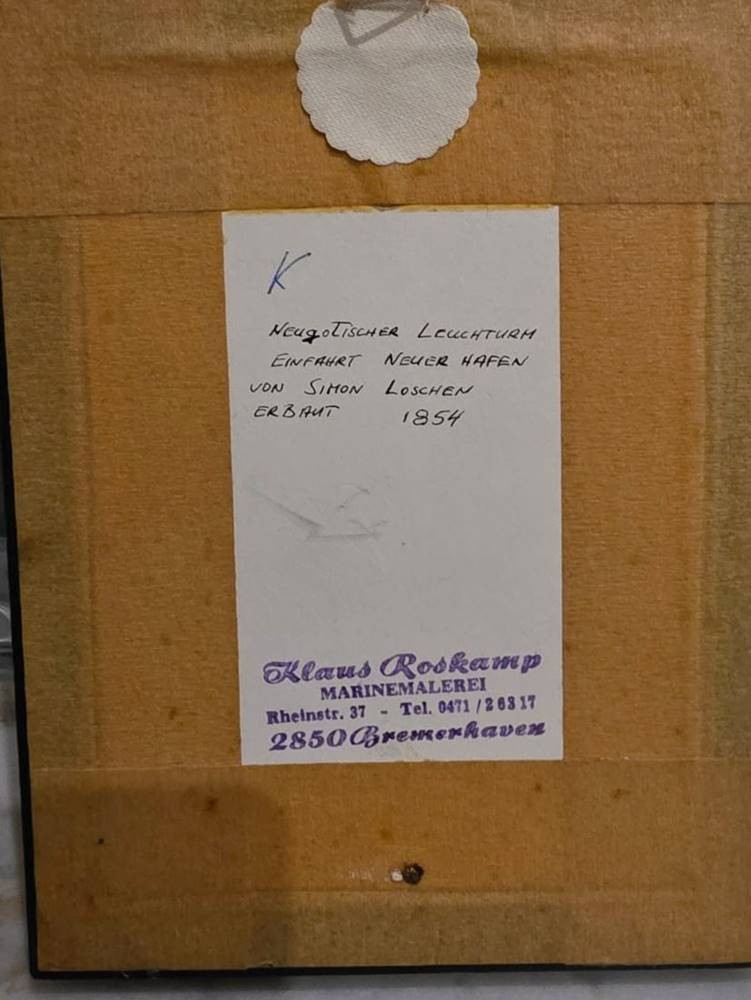 K
NEUGOTISCHER LEUCHTURM
EINFAHRT NEUER HAFEN
VON SIMON LOSCHEN
ERBAUT 1854
Klaus Roskamp
MARINEMALEREI
Rheinstr. 37 - Tel. 0471 / 2 63 17
2850 Bremerhaven